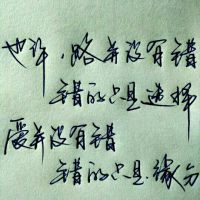 也许，路并没有错
错的只是选择
爱并没有错
错的只是缘分